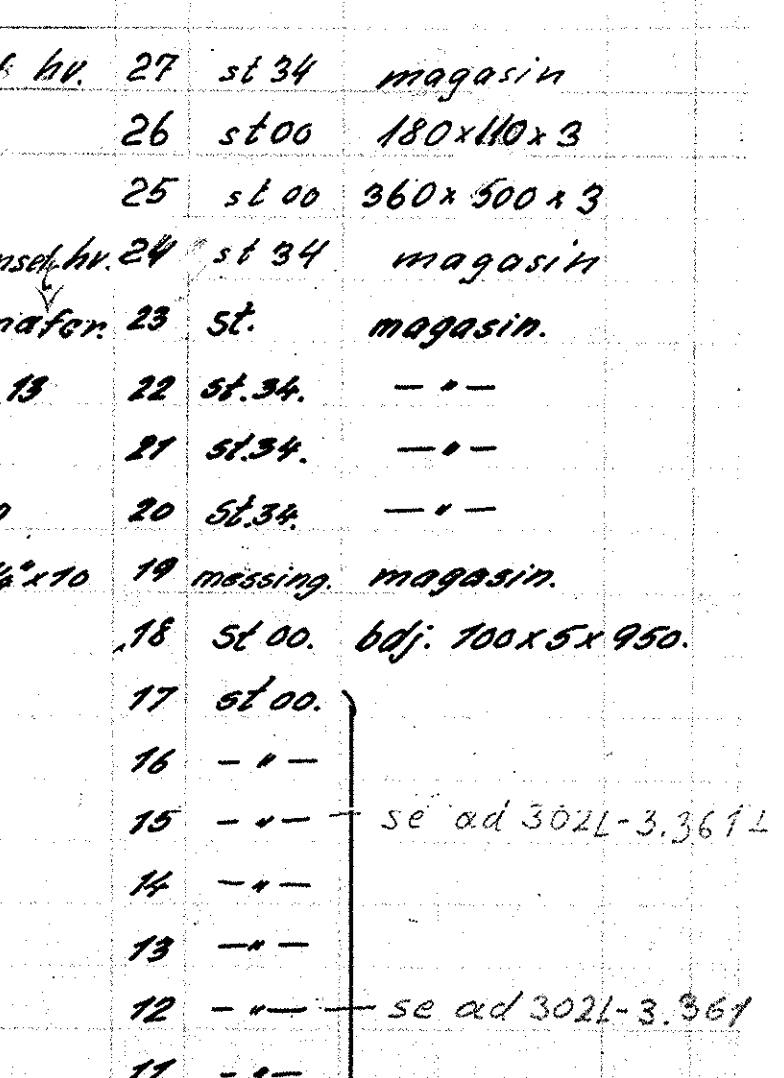 hv. 27 st 34 magasin
26 st 00 180x110x3
25 st 00 360x500x3
hv. 24 st 34 magasin
23 st. magasin.
13 22 st.34. — " —
21 st.34. — " —
20 St.34. — " —
x10 19 messing. magasin.
18 St 00. bdj. 100x5x950.
17 st 00.
16 — " —
15 — " — se ad 302L-3.361
14 — " —
13 — " —
12 — " — se ad 302L-3.361
11 — " —